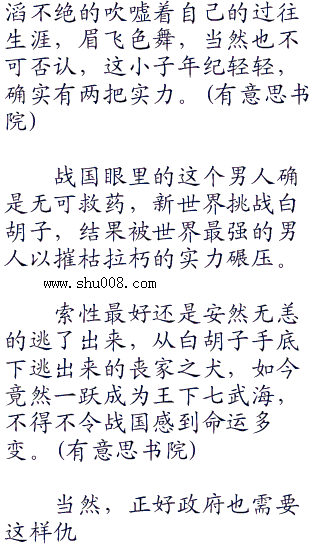 滔不绝的吹嘘着自己的过往
生涯，眉飞色舞，当然也不
可否认，这小子年纪轻轻，
确实有两把实力。(有意思书
院)
战国眼里的这个男人确
是无可救药，新世界挑战白
胡子，结果被世界最强的男
人以摧枯拉朽的实力碾压。
www.shu008.com
索性最好还是安然无恙
的逃了出来，从白胡子手底
下逃出来的丧家之犬，如今
竟然一跃成为王下七武海，
不得不令战国感到命运多
变。(有意思书院)
当然，正好政府也需要
这样仇